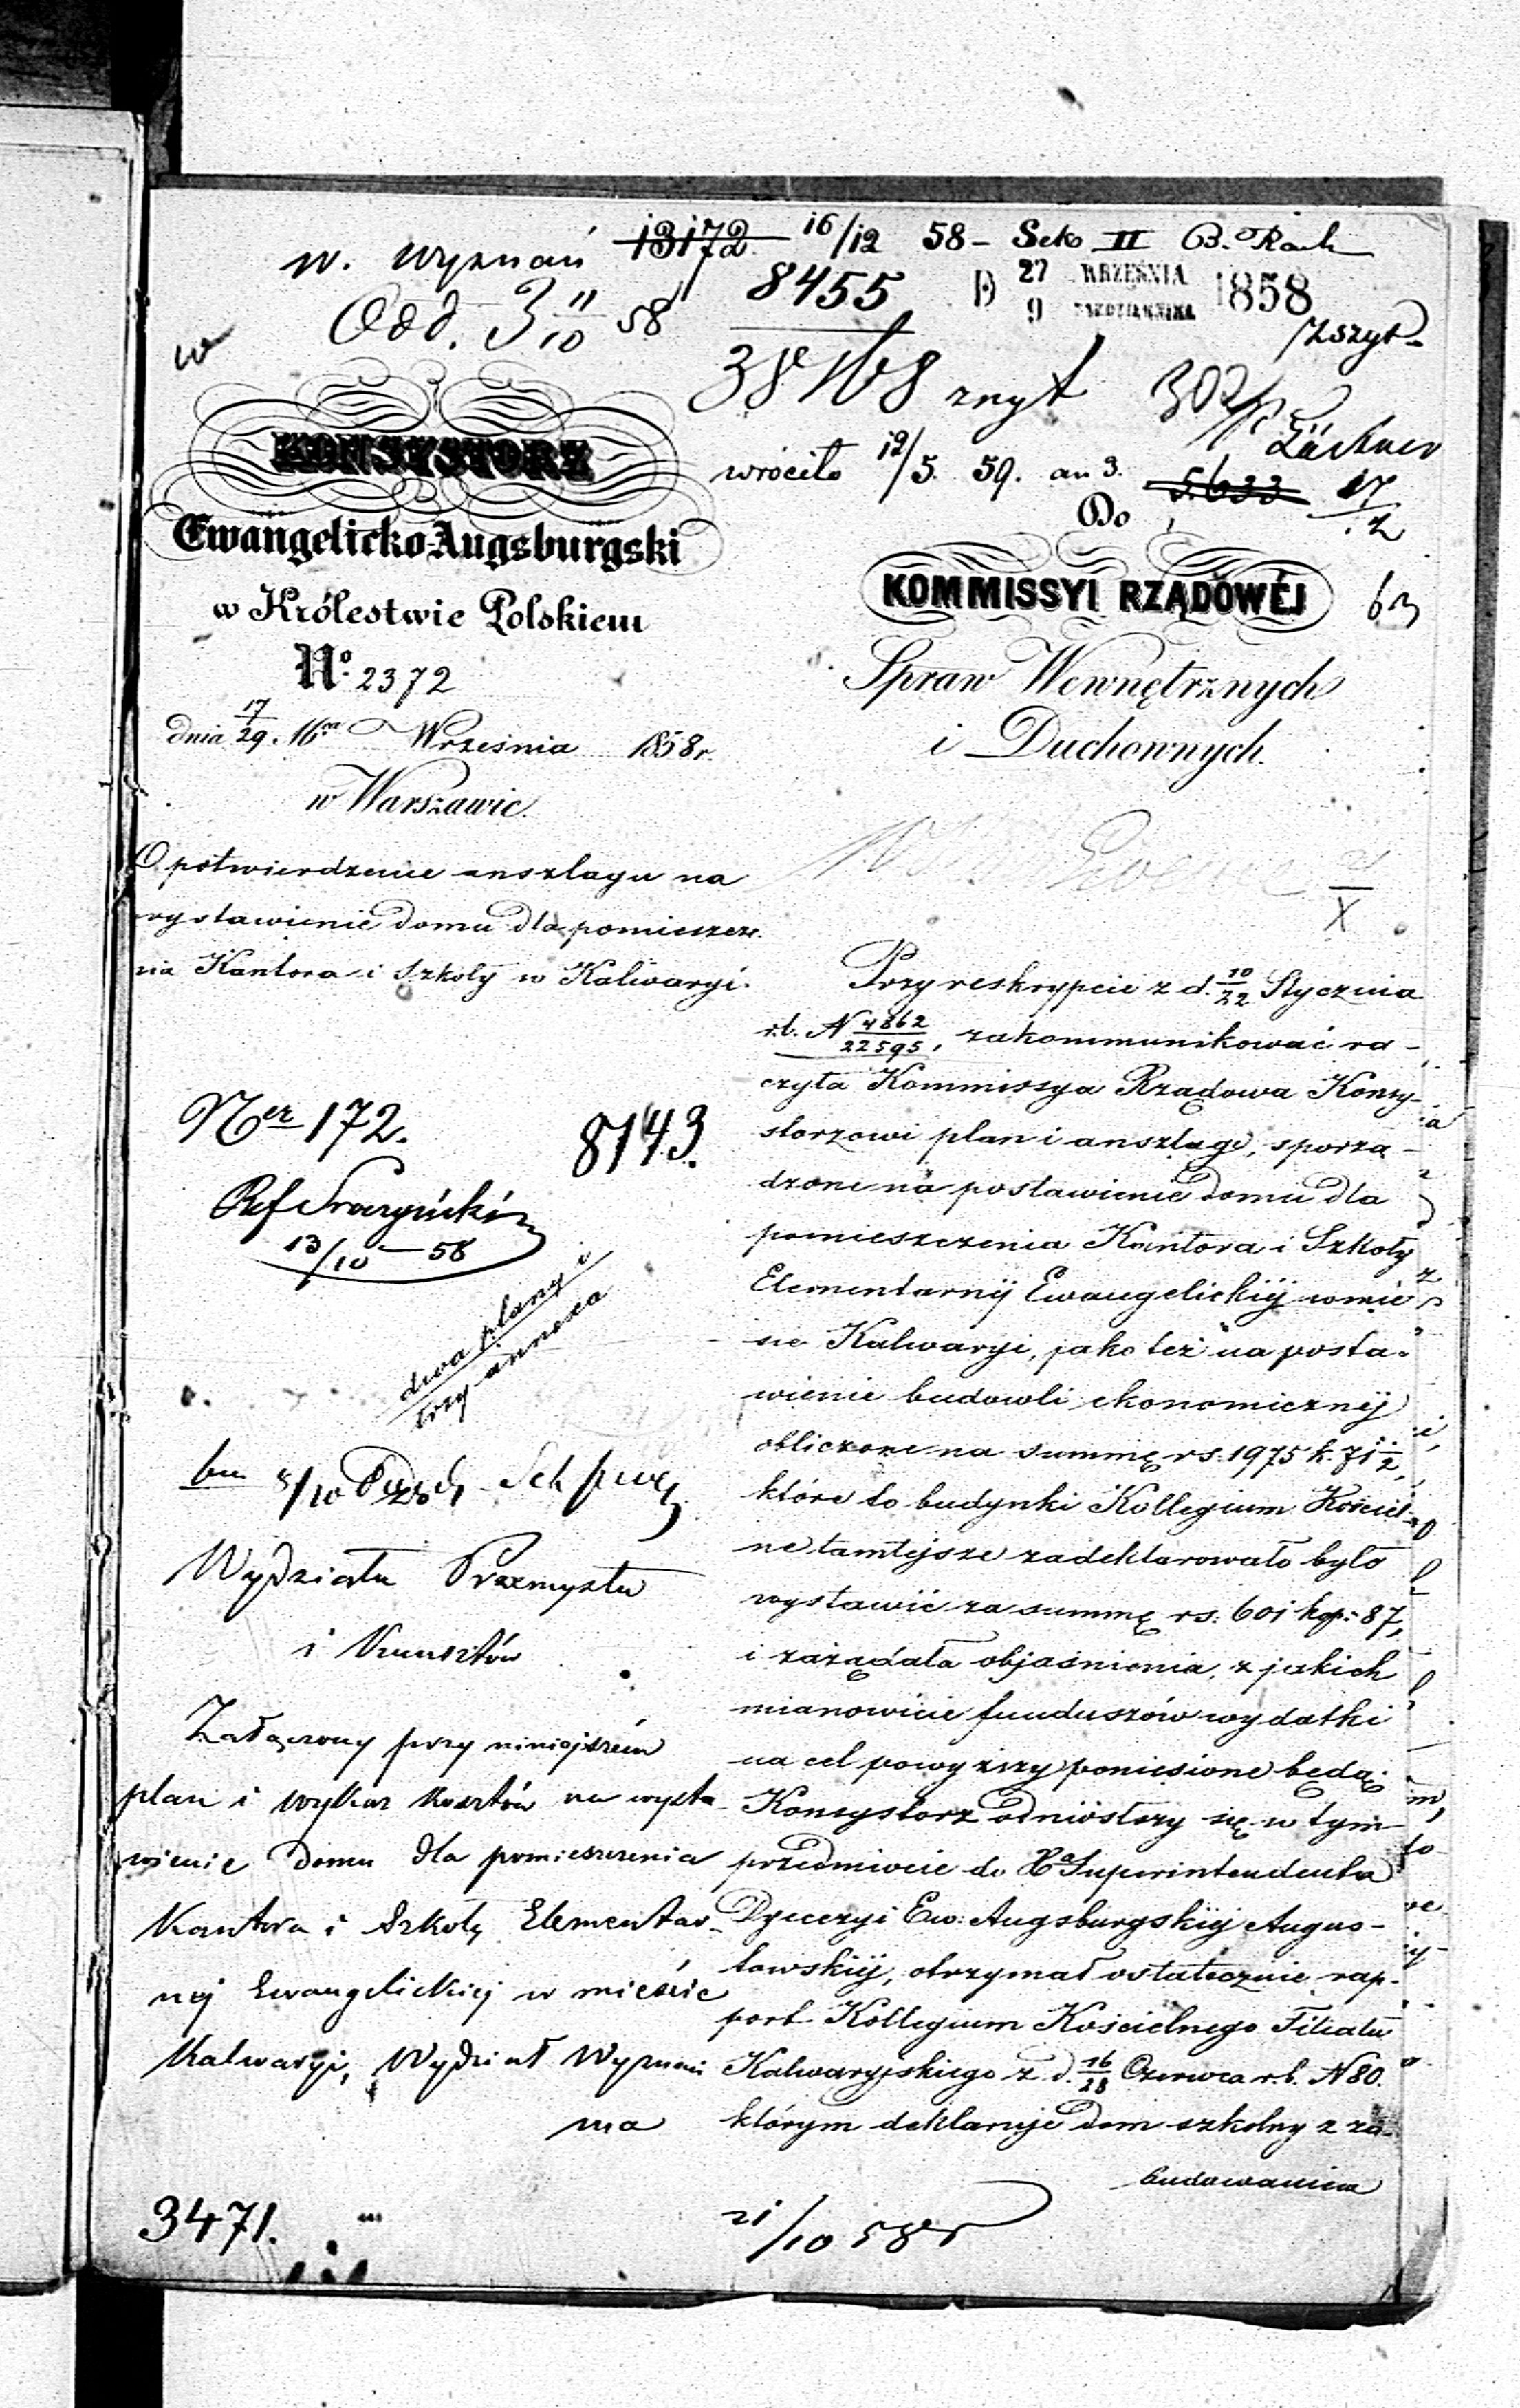 w. wyznań 13172 16/12 58 – Sek II B.
Odd. 3 11/10 58
8455
D 27 WRZEŚNIA 1858
9 PAŹDZIERNIKA
Zszyt
w
zszyt
wróciło 12/5. 59. an 3. 5633 17/2
KONSYSTORZ
Ewangelicko Augsburgski
w Królestwie Polskiem
No. 2372
dnia 17/29. Września 1858 r.
w Warszawie.
O potwierdzenie anszlagu na
wystawienie domu dla pomieszcze
nia Kantora i Szkoły w Kalwaryi.
Ner 172.
8143.
Ref
13/10 – 58
dwa plany i
trzy annexa
Wydziału Przemysłu
i Kunsztów
Załączony przy niniejszém
plan i wykaz kosztów na wysta
wienie domu dla pomieszczenia
Kantora i Szkoły Elementar
nej Ewangelickiej w mieście
Kalwaryi, Wydział Wyznań
ma
3471.
Do
KOMMISSYI RZĄDOWÉJ
63
Spraw Wewnętrznych
i Duchownych.
X
Przy reskrypcie z d. 10/22 Stycznia
r.b. N 4862/22595, zakommunikować ra-
czyła Kommissya Rządowa Konsy-
storzowi plan i anszlagi, sporzą-
dzone na postawienie domu dla
pomieszczenia Kantora i Szkoły
Elementarnij Ewangelickiij w mie
ście Kalwaryi, jako też na posta-
wienie budowli ekonomicznij
obliczone na summę rs: 1975 k. 71 1/2,
które to budynki Kollegium Kościel-
ne tamtejsze zadeklarowało było
wystawić za summę rs: 601 kop: 87,
i zażądała objaśnienia, z jakich
mianowicie funduszów wydatki
na cel powyższy poniesione będą.
Konsystorz odniósłszy się w tym
przedmiocie do Xa Superintendenta
Dyecezyi Ew: Augsburgskiij Augus-
towskiij, otrzymał ostatecznie rap-
port Kollegium Kościelnego Filiału
Kalwaryjskiego z d. 16/28 Czerwca r.b. N 80.
którym deklaruje dom szkolny z za-
budowaniem
21/10 58